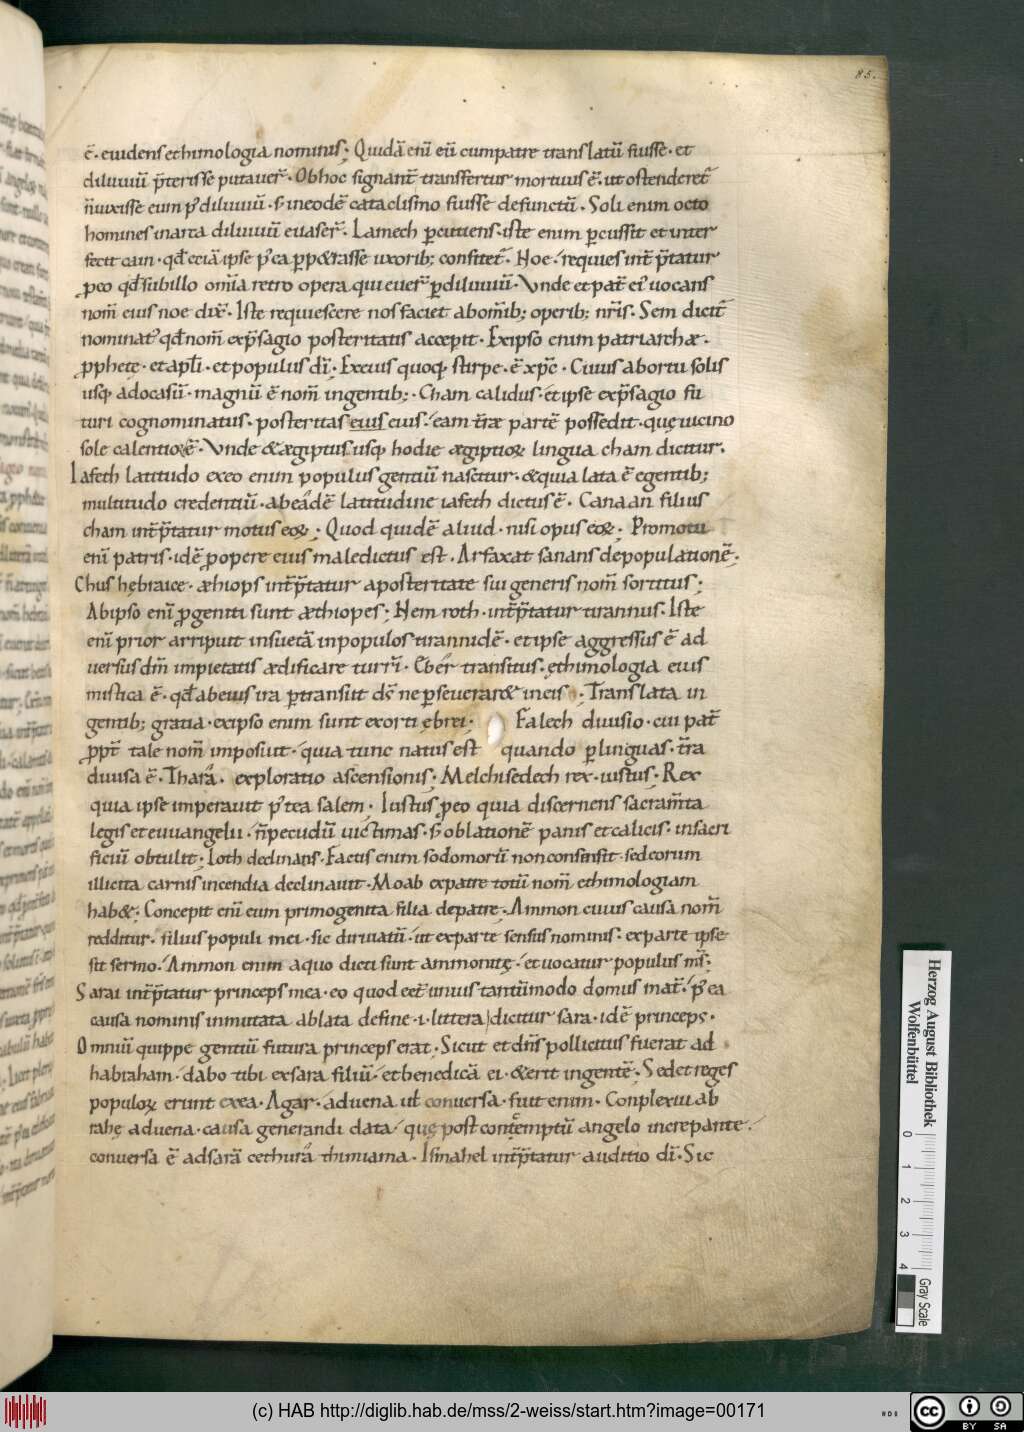 85.
ē · euidens ethimologia nominis; Quidā enī eū cum patre translatū fuisse · et
diluuiū p̄terisse putauer̄ · Ob hoc signant̄ transfertur mortuus ē · ut ostenderet̄
n̄ uixisse eum p' diluuiū · s; in eodē cataclismo fuisse defunctū · Soli enim octo
homines in arca diluuiū euaser̄ · Lamech ꝑcutiens · iste enim ꝑcussit et inter
fecit cain · qđ etiā ipse p'ea ꝑpetrasse uxorib; confitet̄ · Noe · requies int̄p̄tatur
ꝓeo qđ sub illo om̄ia retro opera quieuer̄ ꝑ diluuiū · Vnde et pat̄ ei' uocans
nom̄ eius noe dix̄ · Iste requiescere nos faciet ab om̄ib; operib; nr̄is · Sem dicit̄
nominat' qđ nom̄ ex p̄sagio posteritatis accepit · Ex ipso enim patriarchæ ·
ꝓphetę · et apl̄i · et populus dī; Ex eius quoq; stirpe · ē xp̄c · Cuius ab ortu solis
usq; ad occasū · magnū ē nom̄ in gentib; · Cham calidus · et ipse ex p̄sagio fu
turi cognominatus · posteritas eius eius · eam t̄ræ partē possedit · quę uicino
sole calentior ē · Vnde & ægiptus usq; hodie ægiptioꝝ lingua cham dicitur ·
Iafeth latitudo ex eo enim populus gentiū nascitur · & quia lata ē e gentib;
multitudo credentiū · ab eadē latitudine iafeth dictus ē · Canaan filius
cham int̄p̄tatur motus eoꝝ; Quod quidē aliud · nisi opus eoꝝ; Pro motu
enī patris · idē ꝓ opere eius maledictus est · Arfaxat sanans depopulationē ·
Chus hebraice · æhiops int̄p̄tatur a posteritate sui generis nom̄ sortitus;
Ab ipso enī ꝓgeniti sunt æthiopes; Nemroth · int̄p̄tatur tirannus · Iste
enī prior arripuit insuetā in populos tirannidē · et ipse aggressus ē ad
uersus dm̄ impietatis ædificare turrī · Eber transitus · ethimologia eius
mistica ē · qđ ab eius ira ꝑtransiit ds̄ ne ꝑseuerar& in eis · Translata in
gentib; gratia · ex ipso enim sunt exorti ębrei · Falech diuisio · cui pat̄
ꝓpt̄ tale nom̄ imposuit · quia tunc natus est quando ꝑ linguas · t̄ra
diuisa ē · Thara · exploratio ascensionis; Melchisedech rex · iustus; Rex
quia ipse imperauit p'tea salem · Iustus ꝓeo quia discernens sacram̄ta
legis et euuangelii · n̄ pecudū uictimas · s; oblationē panis et calicis · in sacri
ficiū obtulit; Loth declinans · Factis enim sodomorū non consensit · sed eorum
illicita carnis incendia declinauit · Moab ex patre totū nom̄ ethimologiam
hab&; Concepit enī eum primogenita filia de patre; Ammon cuius causa nom̄
redditur · filius populi mei · sic diriuatū · ut ex parte sensus nominis · ex parte ipse
sit sermo · Ammon enim a quo dicti sunt ammonitę · et uocatur populus m̄s;
Sarai int̄p̄tatur princeps mea · eo quod eet̄ unius tantūmodo domus mat̄ · p'ea
causa nominis inmutata ablata de fine · i · littera dicitur sara · idē princeps ·
Omniū quippe gentiū futura princeps erat · Sicut et dn̄s pollicitus fuerat ad
habraham · dabo tibi ex sara filiū · et benedicā ei · & erit in gentē · Sed et reges
populoꝝ erunt ex ea · Agar · aduena uł conuersa · fuit enim · Conplexui ab
rahę aduena · causa generandi data · quę post contemptū angelo increpante ·
conuersa ē ad sarā cethura thimiama · Ismahel int̄p̄tatur auditio dī · Sic
Herzog August Bibliothek
Wolfenbüttel
0 1 2 3 4
Gray Scale
(c) HAB http://diglib.hab.de/mss/2-weiss/start.htm?image=00171
CC BY SA